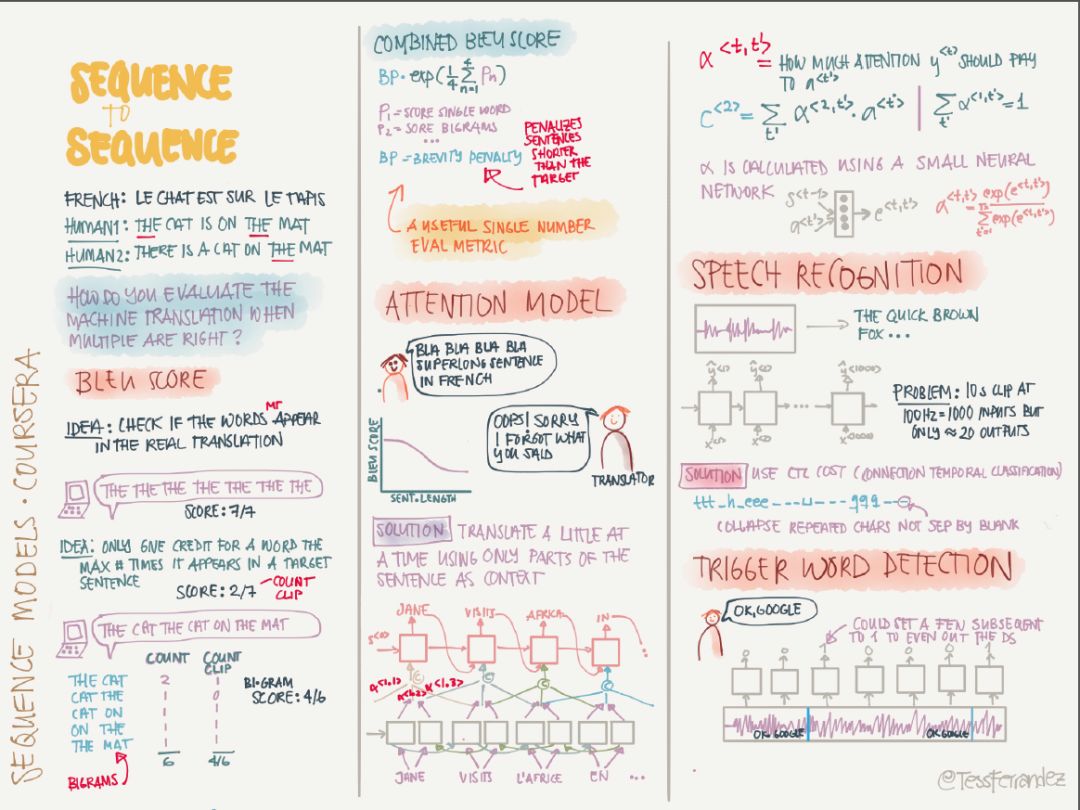 SEQUENCE
TO
SEQUENCE
FRENCH: LE CHAT EST SUR LE TAPIS
HUMAN1: THE CAT IS ON THE MAT
HUMAN2: THERE IS A CAT ON THE MAT
HOW DO YOU EVALUATE THE
MACHINE TRANSLATION WHEN
MULTIPLE ARE RIGHT?
BLEU SCORE
MT
IDEA: CHECK IF THE WORDS APPEAR
IN THE REAL TRANSLATION
THE THE THE THE THE THE THE
SCORE: 7/7
IDEA: ONLY GIVE CREDIT FOR A WORD THE
MAX # TIMES IT APPEARS IN A TARGET
SENTENCE
SCORE: 2/7
COUNT
CLIP
THE CAT THE CAT ON THE MAT
COUNT
COUNT
CLIP
THE CAT 2 1
CAT THE 1 0
CAT ON 1 1
ON THE 1 1
THE MAT 1 1
6 4/6
BI·GRAM
SCORE: 4/6
BIGRAMS
SEQUENCE MODELS · COURSERA
COMBINED BLEU SCORE
BP · exp(1/4 4∑n=1 Pn)
P1 = SCORE SINGLE WORD
P2 = SORE BIGRAMS
...
BP = BREVITY PENALTY
PENALIZES
SENTENCES
SHORTER
THAN THE
TARGET
A USEFUL SINGLE NUMBER
EVAL METRIC
ATTENTION MODEL
BLA BLA BLA BLA
SUPERLONG SENTENCE
IN FRENCH
OOPS! SORRY
I FORGOT WHAT
YOU SAID
TRANSLATOR
BLEU SCORE
SENT. LENGTH
SOLUTION TRANSLATE A LITTLE AT
A TIME USING ONLY PARTS OF THE
SENTENCE AS CONTEXT
JANE VISITS AFRICA IN
S<0>
C C C C
α<1,1> α<1,2> α<1,3>
JANE VISITS L'AFRICE EN ...
α<t,t'> = HOW MUCH ATTENTION y<t> SHOULD PAY
TO a<t'>
C<2> = ∑t' α<2,t'> · a<t'> | ∑t' α<1,t'> = 1
α IS CALCULATED USING A SMALL NEURAL
NETWORK
S<t-1>
a<t'>
e<t,t'>
a<t,t'> = exp(e<t,t'>) / ∑t'=1 exp(e<t,t'>)
SPEECH RECOGNITION
THE QUICK BROWN
FOX...
ŷ<1> ŷ<2> ŷ<1000>
...
x<1> x<2> x<1000>
PROBLEM: 10s CLIP AT
100Hz = 1000 INPUTS BUT
ONLY ≈ 20 OUTPUTS
SOLUTION USE CTC COST (CONNECTION TEMPORAL CLASSIFICATION)
ttt_h_eee---⊔---qqq--
COLLAPSE REPEATED CHARS NOT SEP BY BLANK
TRIGGER WORD DETECTION
OK, GOOGLE
COULD SET A FEW SUBSEQUENT
TO 1 TO EVEN OUT THE DS
0 0 1 0 0 0 1
OK, GOOGLE
OK GOOGLE
@TessFerrandez